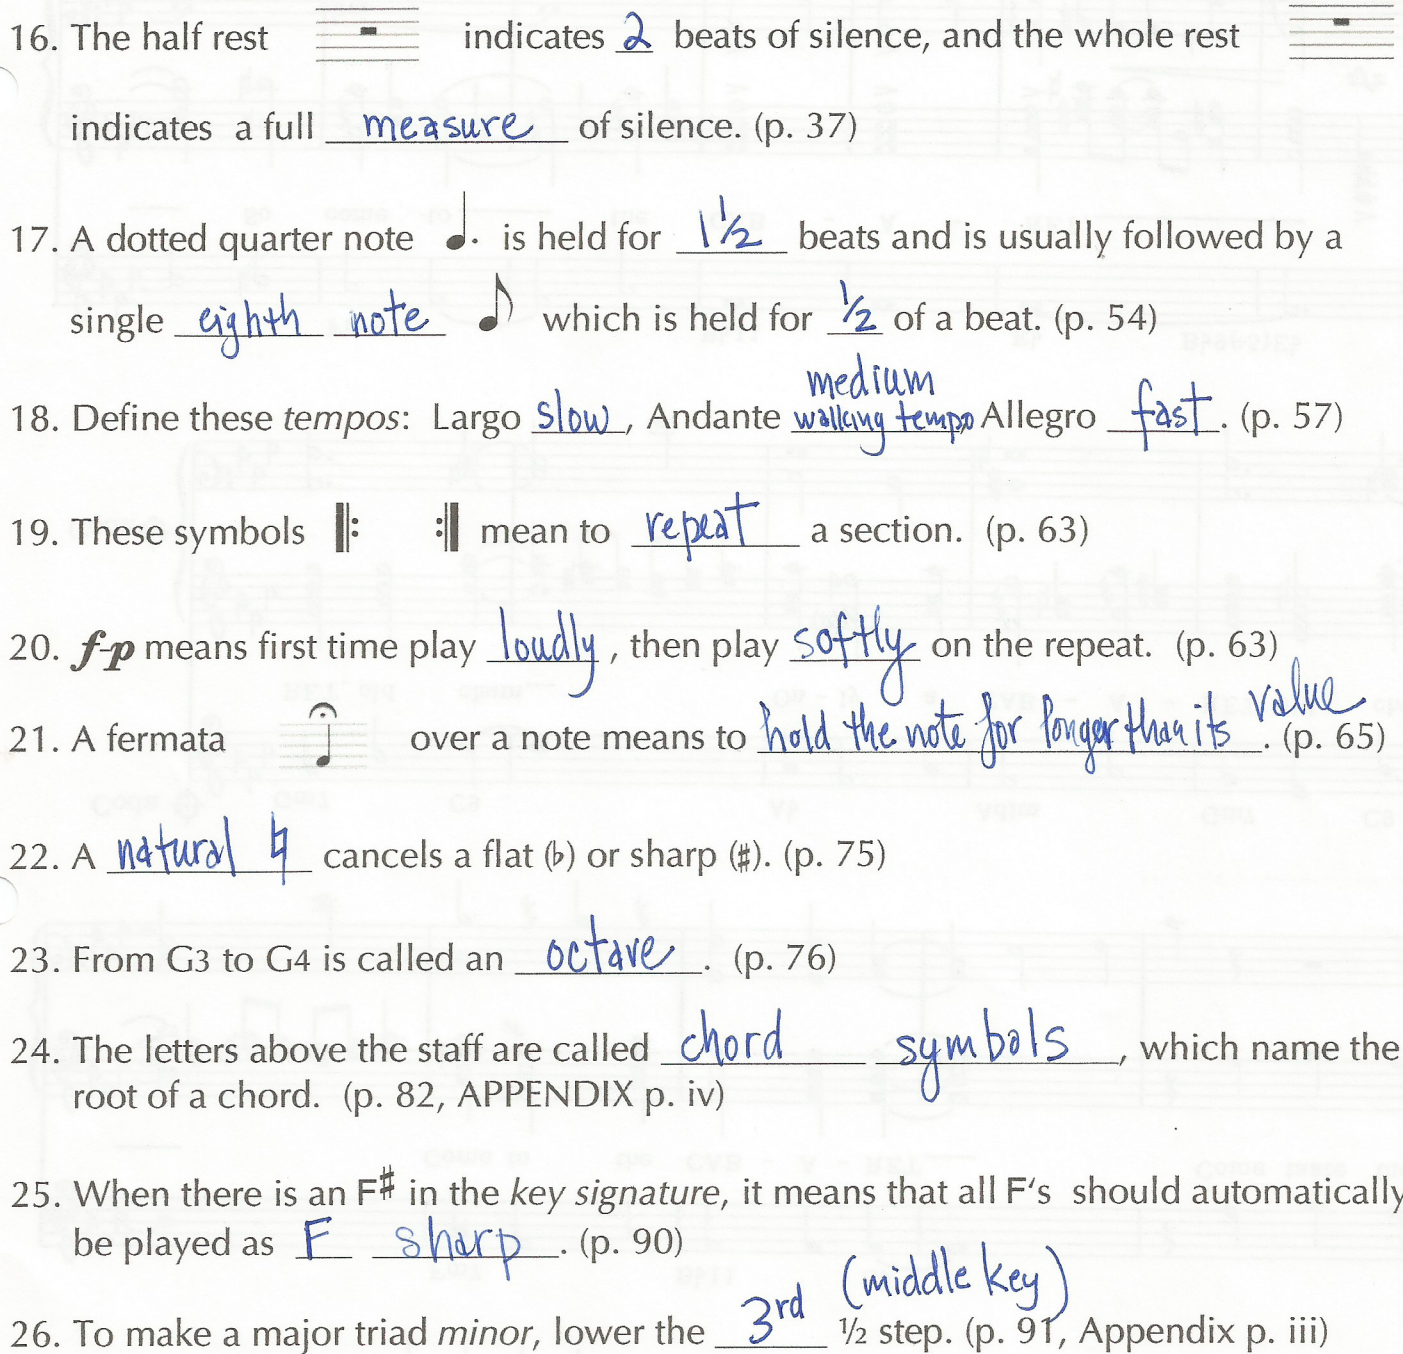 16. The half rest indicates 2 beats of silence, and the whole rest
indicates a full measure of silence. (p. 37)
17. A dotted quarter note is held for 1 1/2 beats and is usually followed by a
single eighth note which is held for 1/2 of a beat. (p. 54)
medium
18. Define these tempos: Largo slow, Andante walking tempo, Allegro fast. (p. 57)
19. These symbols mean to repeat a section. (p. 63)
20. f-p means first time play loudly, then play softly on the repeat. (p. 63)
21. A fermata over a note means to hold the note for longer than its value. (p. 65)
22. A natural ♮ cancels a flat (♭) or sharp (♯). (p. 75)
23. From G3 to G4 is called an octave. (p. 76)
24. The letters above the staff are called chord symbols, which name the
root of a chord. (p. 82, APPENDIX p. iv)
25. When there is an F♯ in the key signature, it means that all F's should automatically
be played as F sharp. (p. 90)
(middle key)
26. To make a major triad minor, lower the 3rd ½ step. (p. 91, Appendix p. iii)